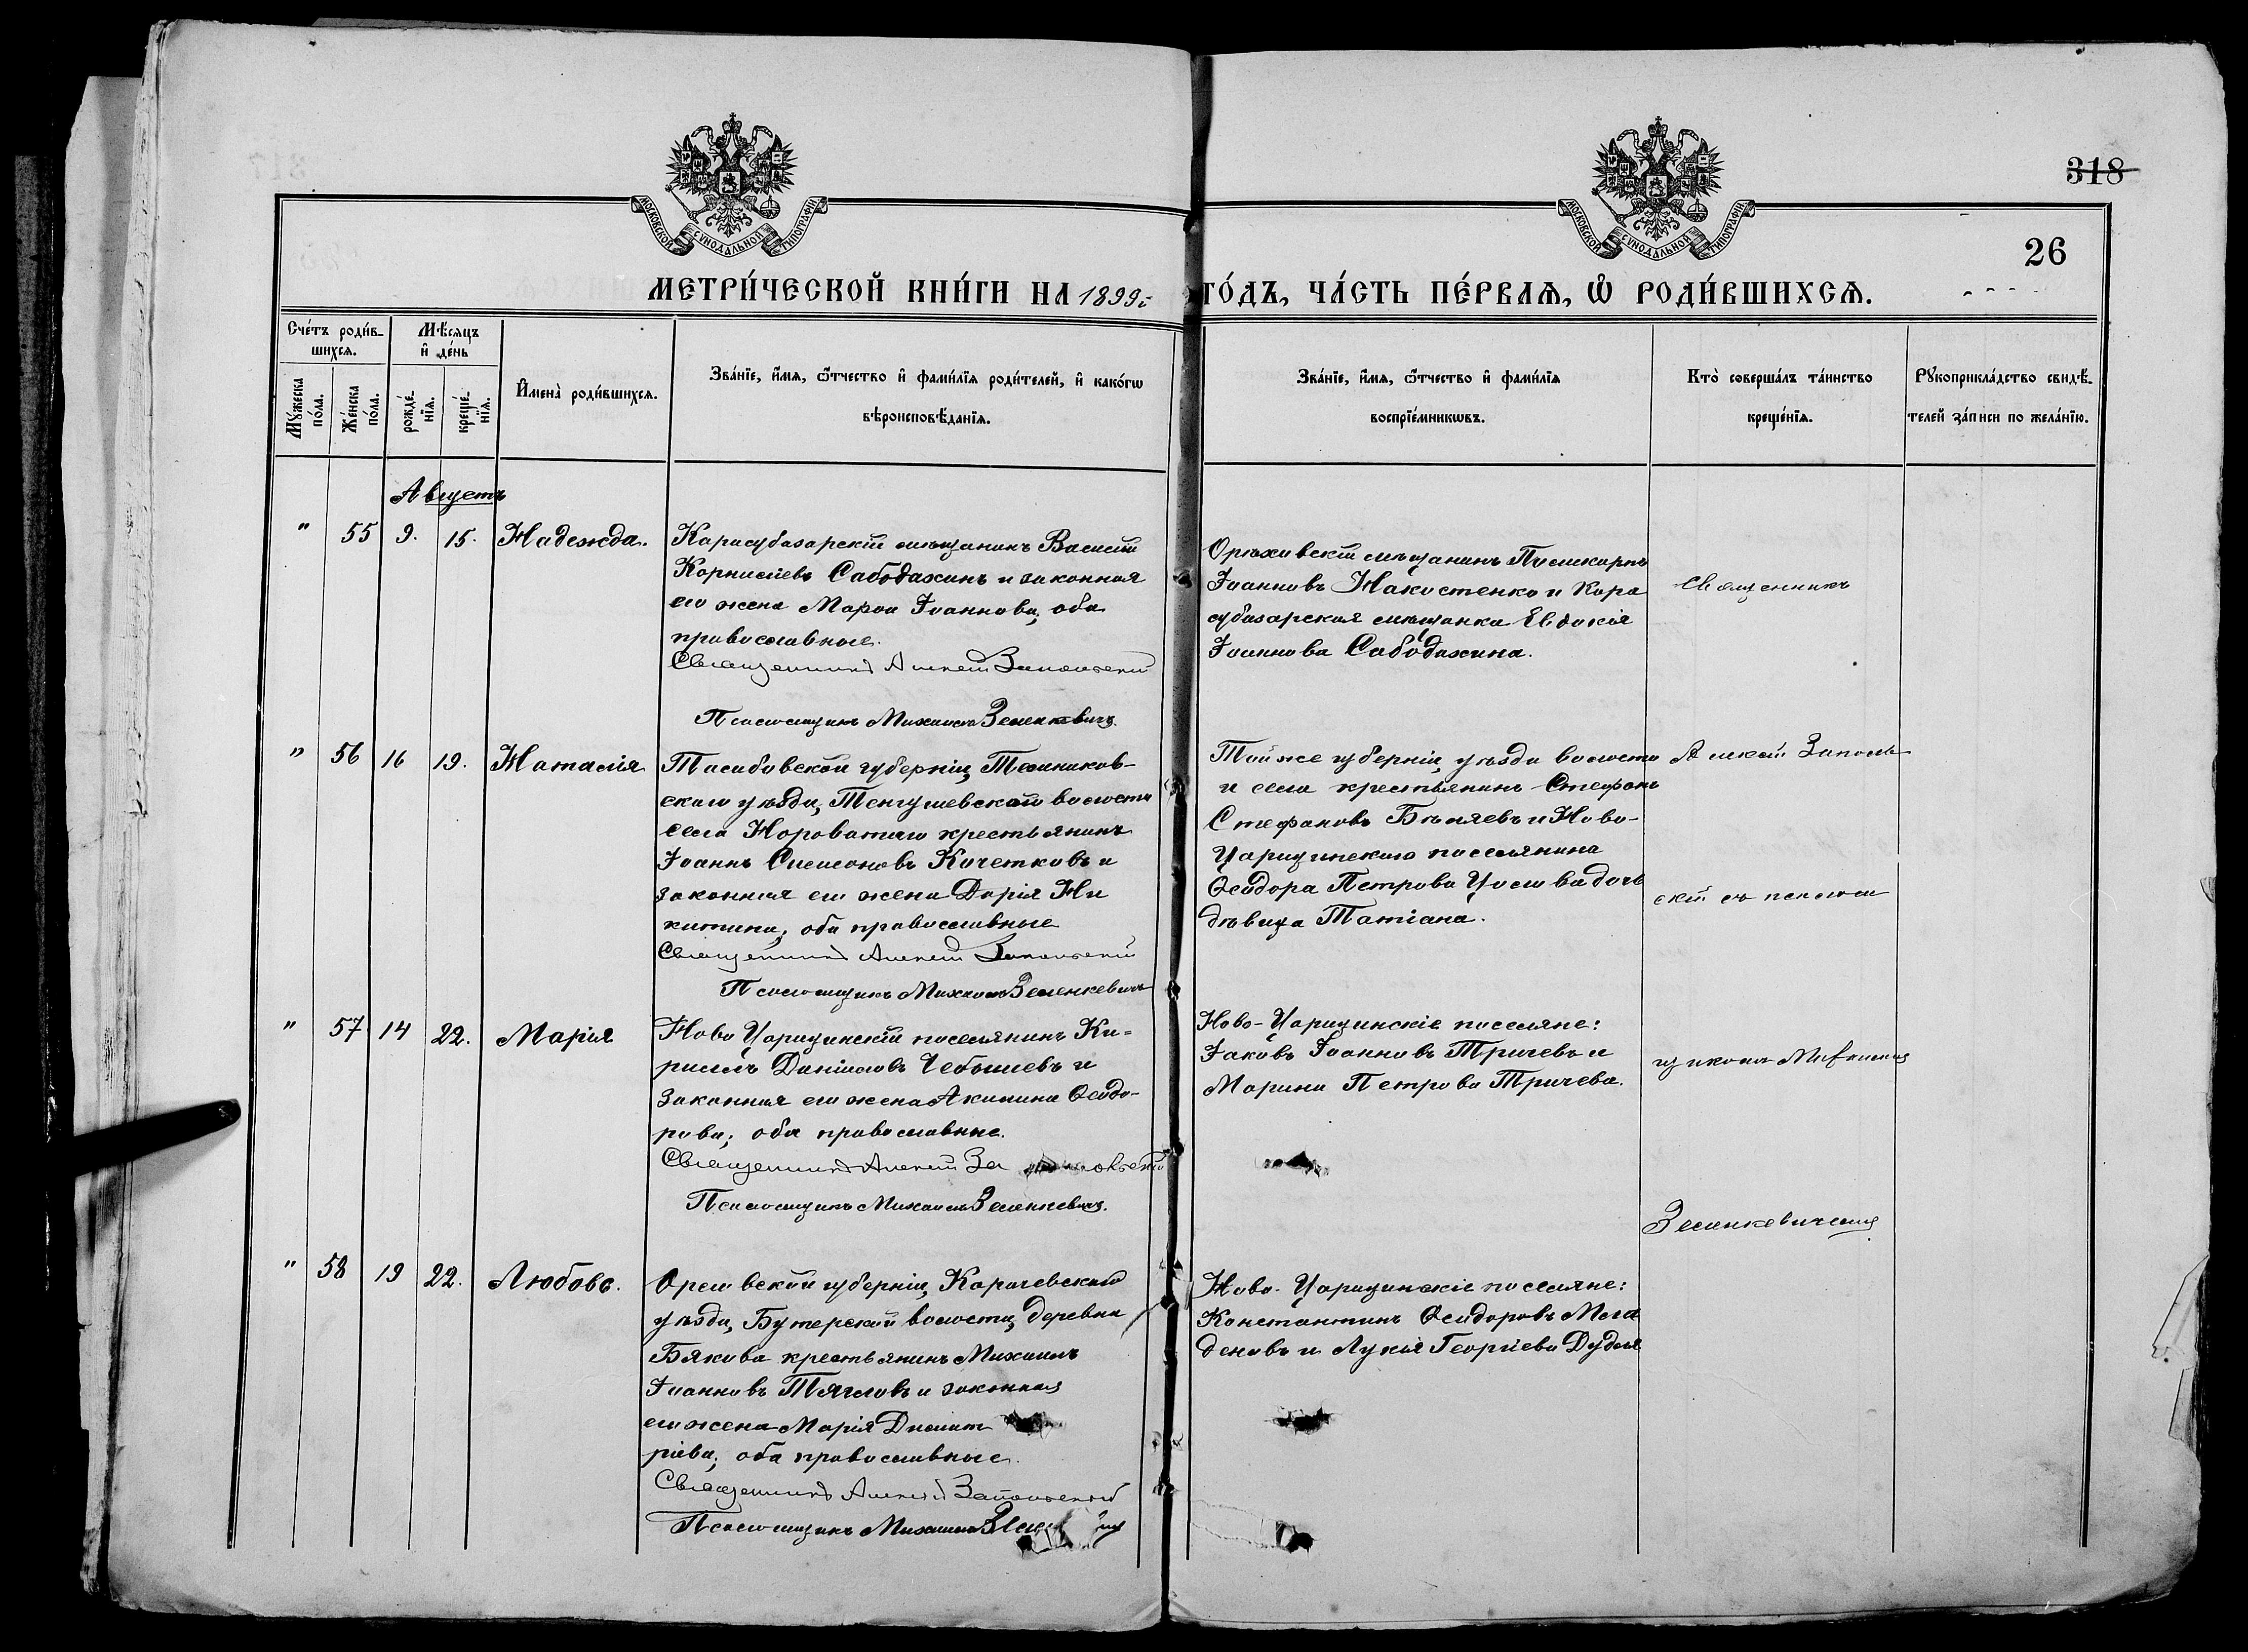 318
26
МОСКОВСКОЙ СѴНОДАЛЬНОЙ ТИПОГРАФІИ
МОСКОВСКОЙ СѴНОДАЛЬНОЙ ТИПОГРАФІИ
МЕТРИ́ЧЕСКОЙ КНИ́ГИ НА 1899 ГО́ДЪ, ЧА́СТЬ ПЕ́РВАѦ, Ѡ҆ РОДИ́ВШИХСѦ.
Сче́тъ роди́в-
шихсѧ.
Мѣ́сѧцъ
и҆ де́нь
Мꙋ́жеска
по́ла.
Же́нска
по́ла.
рожде́-
нїѧ.
креще́-
нїѧ.
И҆мена̀ роди́вшихсѧ.
Зва́нїе, и҆́мѧ, ѻ҆́тчество и҆ фами́лїѧ роди́телей, и҆ како́гѡ
вѣроисповѣ́данїѧ.
Зва́нїе, и҆́мѧ, ѻ҆́тчество и҆ фами́лїѧ
воспрїе́мникѡвъ.
Кто̀ соверша́лъ та́инство
креще́нїѧ.
Рꙋкоприкла́дство свидѣ́-
телей за́писи по жела́нїю.
Августъ
" 55 9. 15. Надежда.
Карасубазарскій мѣщанинъ Василій
Корнилiевъ Сабодахинъ и законная
его жена Марѳа Іоаннова, оба
православные.
Священникъ Алексій Запольскій
Псаломщикъ Михаилъ Зеленкевичъ.
Орѣховскій мѣщанинъ Поликарпъ
Іоанновъ Накостенко и Кара
субазарская мѣщанка Евдокія
Іоаннова Сабодахина.
Священникъ
" 56 16 19. Наталія
Тамбовской губерніи, Темников-
скаго уѣзда, Тенгушевской волости
села Нороватаго крестьянинъ
Іоаннъ Симеоновъ Кочетковъ и
законная его жена Дарія Ни
китина, оба православные
Священникъ Алексій Запольскій
Псаломщикъ Михаилъ Зеленкевичъ
Той же губерніи, уѣзда волости
и села крестьянинъ Стефанъ
Стефановъ Бѣляевъ и Ново-
Царицинскаго поселянина
Ѳеодора Петрова дочь
дѣвица Татіана.
Алексій Заполь
скій съ псалом
" 57 14 22. Марія
Ново Царицинскій поселянинъ Ки-
риллъ Даніиловъ Чебышевъ и
законная его жена Акилина Ѳеодо-
рова; оба православные.
Священникъ Алексій Запольскій
Псаломщикъ Михаилъ Зеленкевичъ.
Ново-Царицинскіе поселяне:
Іаковъ Іоанновъ Тричевъ и
Марина Петрова Тричева.
щикомъ Михаиломъ
Зеленкевичемъ
" 58 19 22. Любовь.
Орловской губерніи, Карачевскаго
уѣзда, Бутерской волости, деревни
Бякова крестьянинъ Михаилъ
Іоанновъ Тягловъ и законная
его жена Марія Димит
ріева; оба православные.
Священникъ Алексій Запольскій
Псаломщикъ Михаилъ
Ново-Царицинскіе поселяне:
Константинъ Ѳеодоровъ Мла
деновъ и Лукія Георгіева Дудля